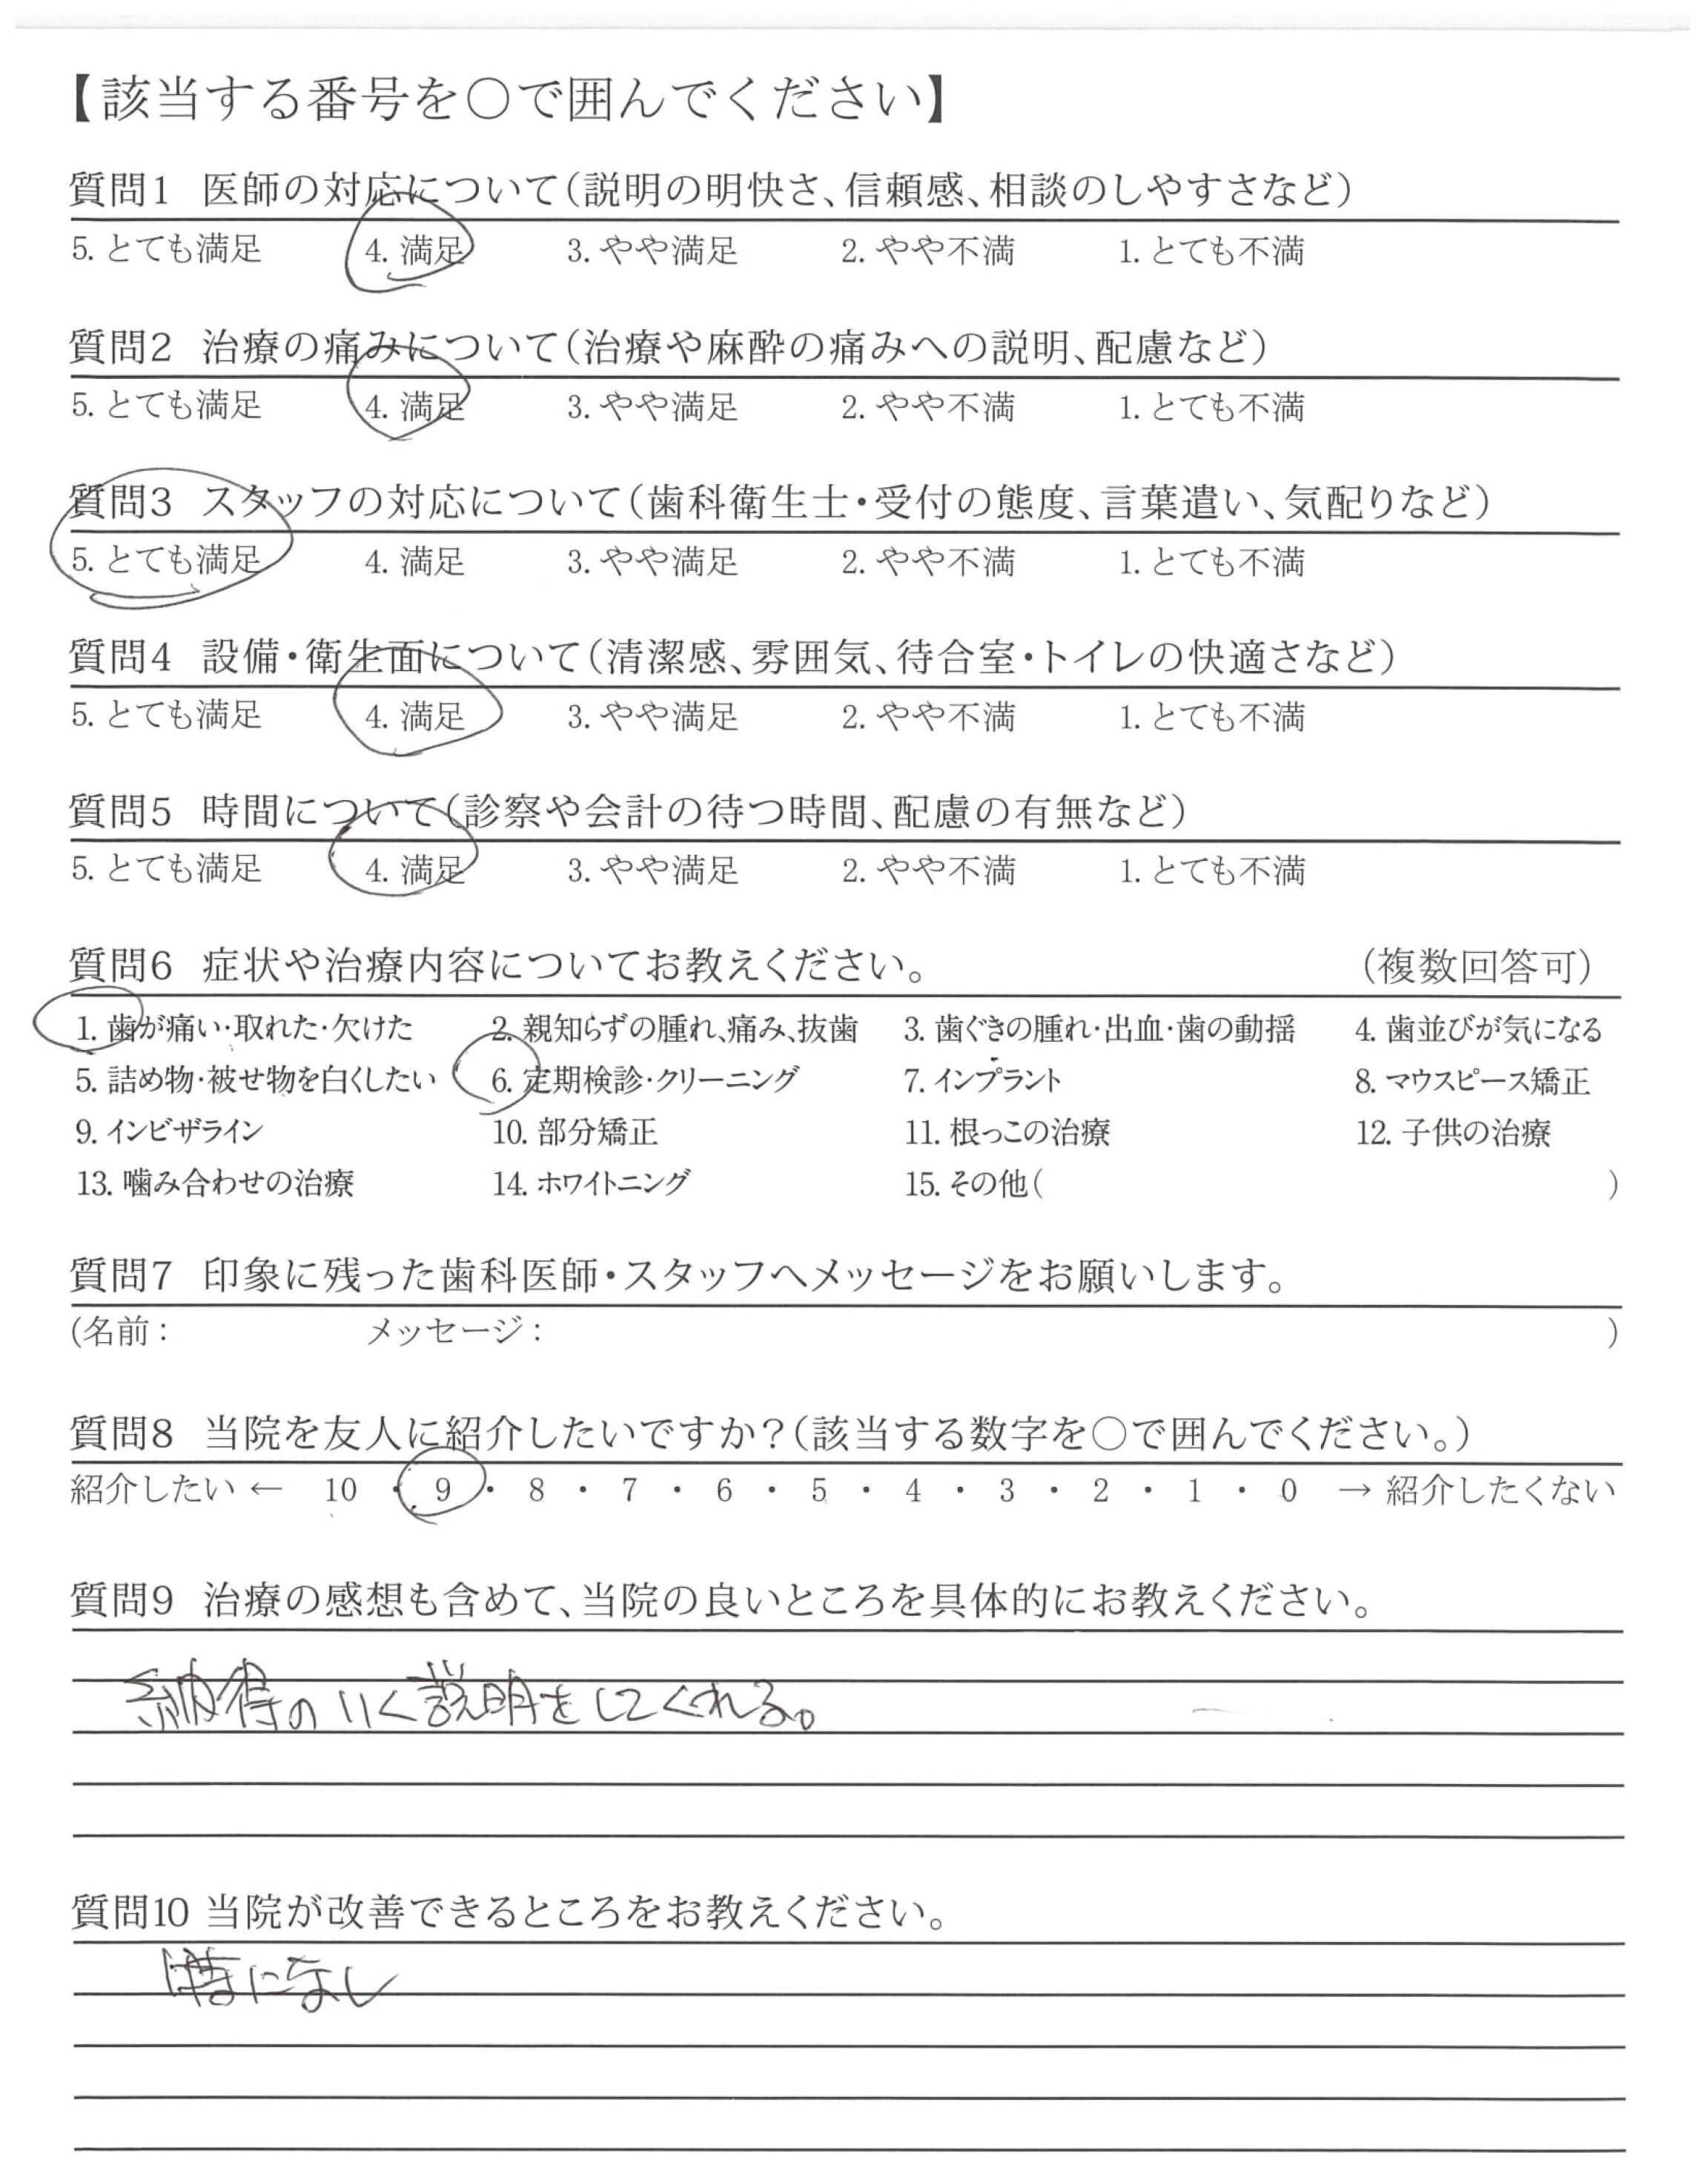 【該当する番号を○で囲んでください】
質問1 医師の対応について(説明の明快さ、信頼感、相談のしやすさなど)
5. とても満足 4. 満足 3. やや満足 2. やや不満 1. とても不満
質問2 治療の痛みについて(治療や麻酔の痛みへの説明、配慮など)
5. とても満足 4. 満足 3. やや満足 2. やや不満 1. とても不満
質問3 スタッフの対応について(歯科衛生士・受付の態度、言葉遣い、気配りなど)
5. とても満足 4. 満足 3. やや満足 2. やや不満 1. とても不満
質問4 設備・衛生面について(清潔感、雰囲気、待合室・トイレの快適さなど)
5. とても満足 4. 満足 3. やや満足 2. やや不満 1. とても不満
質問5 時間について(診察や会計の待つ時間、配慮の有無など)
5. とても満足 4. 満足 3. やや満足 2. やや不満 1. とても不満
質問6 症状や治療内容についてお教えください。 (複数回答可)
1. 歯が痛い・取れた・欠けた 2. 親知らずの腫れ、痛み、抜歯 3. 歯ぐきの腫れ・出血・歯の動揺 4. 歯並びが気になる
5. 詰め物・被せ物を白くしたい 6. 定期検診・クリーニング 7. インプラント 8. マウスピース矯正
9. インビザライン 10. 部分矯正 11. 根っこの治療 12. 子供の治療
13. 噛み合わせの治療 14. ホワイトニング 15. その他( )
質問7 印象に残った歯科医師・スタッフへメッセージをお願いします。
(名前: メッセージ: )
質問8 当院を友人に紹介したいですか?(該当する数字を○で囲んでください。)
紹介したい ← 10 ・ 9 ・ 8 ・ 7 ・ 6 ・ 5 ・ 4 ・ 3 ・ 2 ・ 1 ・ 0 → 紹介したくない
質問9 治療の感想も含めて、当院の良いところを具体的にお教えください。
納得のいく説明をしてくれる。
質問10 当院が改善できるところをお教えください。
特になし